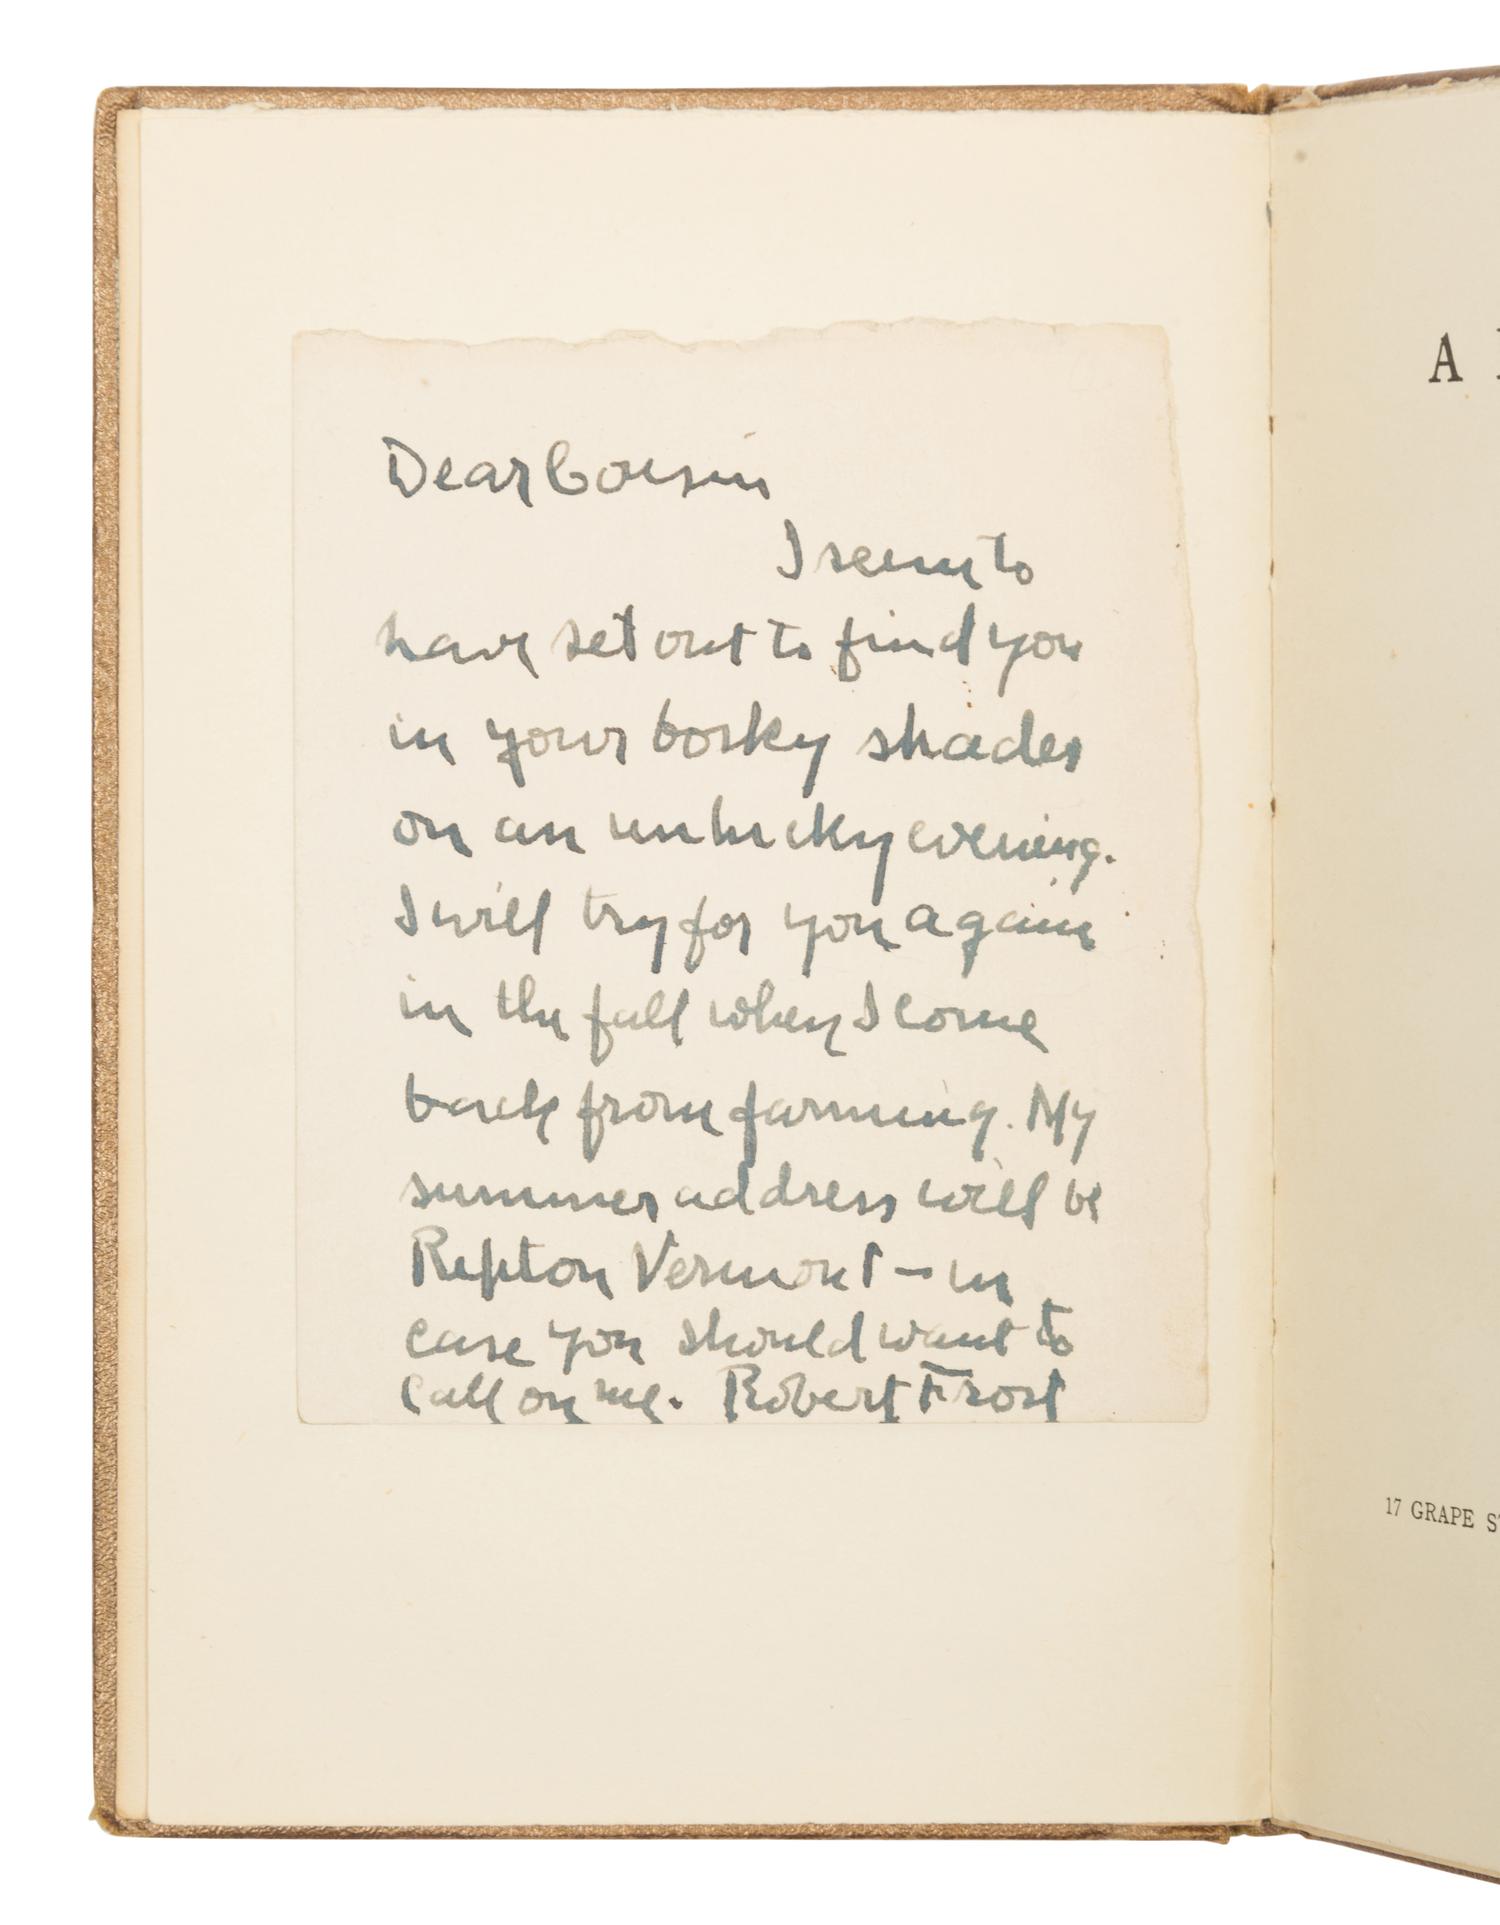 Dear Cousin
I seem to
have set out to find you
in your bosky shades
on an unlucky evening.
I will try for you again
in the fall when I come
back from farming. My
summer address will be
Ripton Vermont — in
case you should want to
call on me. Robert Frost
A
17 GRAPE